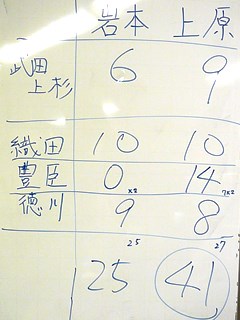 岩本 上原
武田
上杉 6 9
1
織田 10 10
豊臣 0 x2 14 7x2
徳川 9 8
25 27
25 41